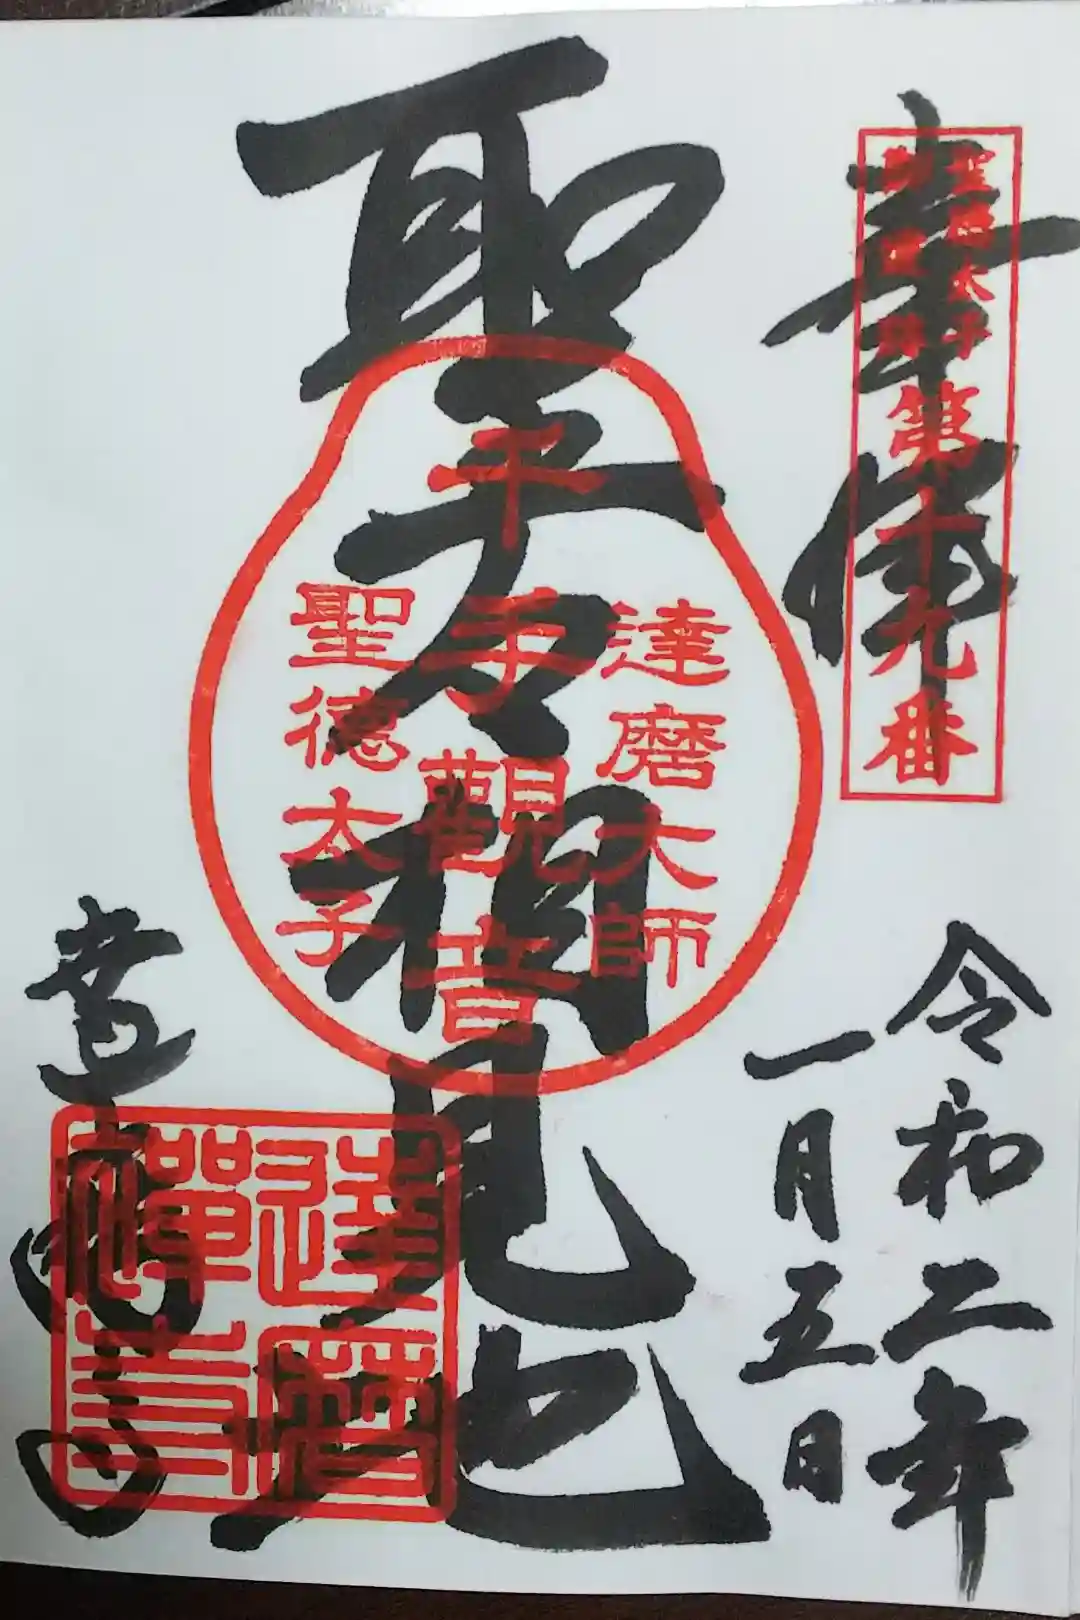 奉拝
聖徳太子
御遺跡
第十九番
令和二年
一月五日
聖々相見也
達磨大師
千手觀音
聖徳太子
達磨
禪寺
達磨寺